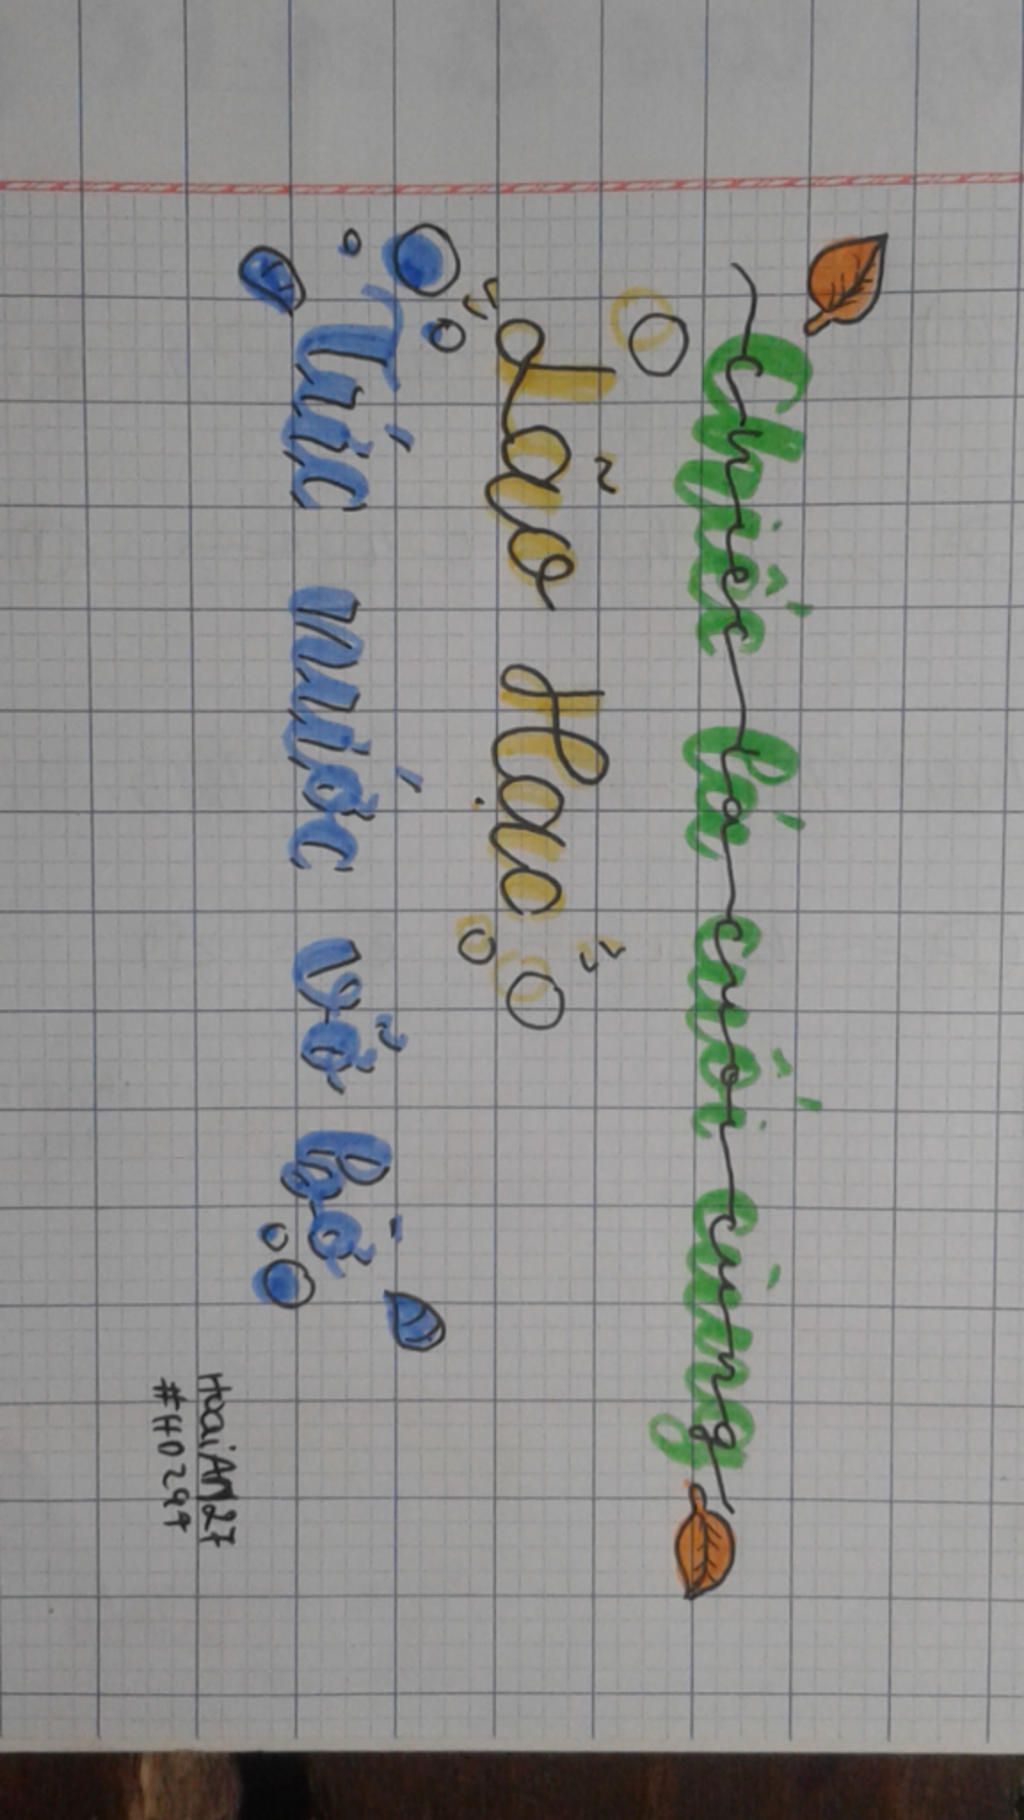 Chiếc lá cuối cùng
Lão Hạc
Tức nước vỡ bờ
HoaiAM27
#HD299